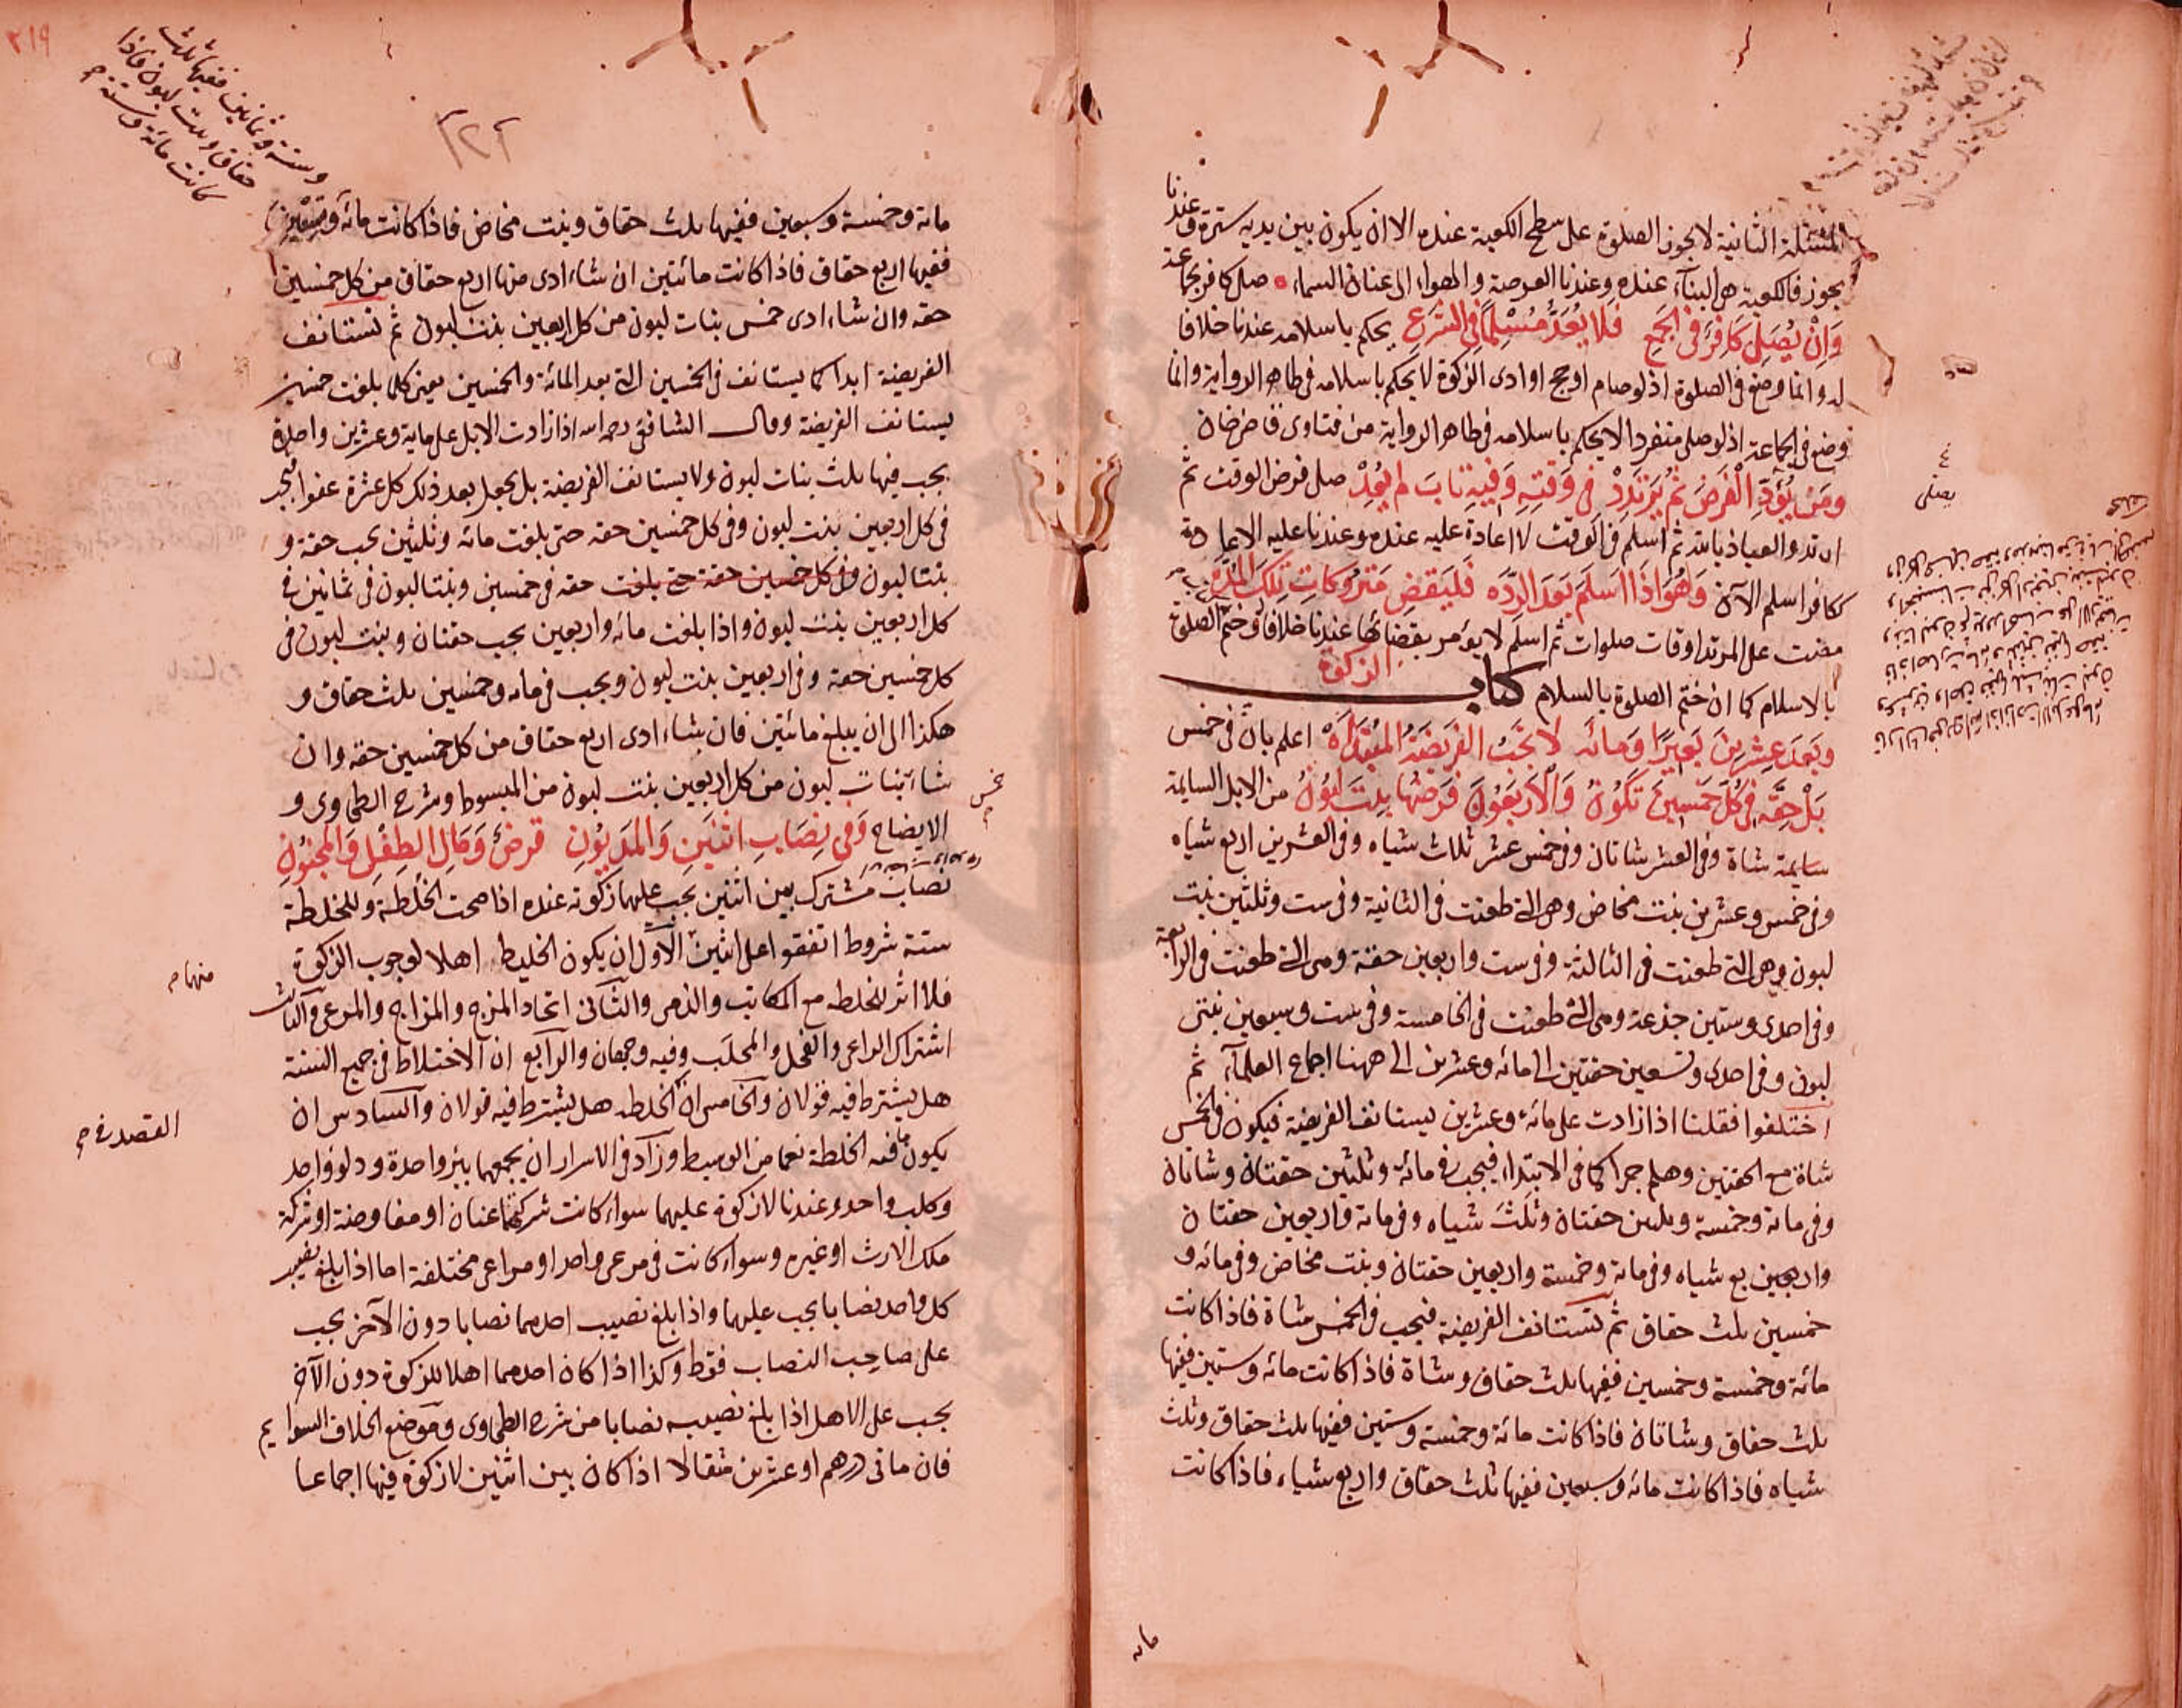 المسئلة الثانية لا يجوز الصلوة على سطح الكعبة عنده الا ان يكون بين يديه سترة وعندنا
يجوز فالكعبة هى البناء عنده وعندنا العرصة والهواء الى عنان السماء صلى كافر بجماعة
وَاِنْ يُصَلِّ كَافِرٌ فى الجَمعِ فَلا يُعَدُّ مُسْلِمًا فى الشرَعِ يحكم باسلامه عندنا خلافا
له وانما وضع فى الصلوة اذ لو صام او حج او ادى الزكوة لا يحكم باسلامه فى ظاهر الرواية وانما
وضع فى الجماعة اذ لو صلى منفردا لا يحكم باسلامه فى ظاهر الرواية من فتاوى قاضى خان
ومَنْ يُؤَدِّ الْفَرضَ ثُم يَرْتَدِدْ فى وَقتِهِ وَفيهِ تابَ لم يُعِدْ صلى فرض الوقت ثم
ارتد والعياذ بالله ثم اسلم فى الوقت لا اعادة عليه عنده وعندنا عليه الاعادة
ككافر اسلم الآن وَهُوَ اذَا اسلَمَ بَعدَ الرِّدَّه فَليَقضِ مَترُوكاتِ تِلكَ المُدَّه
مضت على المرتد اوقات صلوات ثم اسلم لا يؤمر بقضائها عندنا خلافا له وختم الصلوة
بالاسلام كما ان ختم الصلوة بالسلام كتاب الزكوة
وبَعدَ عِشرينَ بَعيرًا وَمائَه لا تجَبُ الفَريضَةُ المُبتَدَأه اعلم بان فى خمس
بَلْ حِقَّه فى كُلِّ خَمسينَ تَكُونُ وَالاَربَعُونَ فَرضُهَا بِنتُ لَبُونُ من الابل السايمة
سايمة شاة وفى العشر شاتان وفى خمس عشر ثلاث شياه وفى العشرين اربع شياه
وفى خمس وعشرين بنت مخاض وهى التى طعنت فى الثانية وفى ست وثلثين بنت
لبون وهى التى طعنت فى الثالثة وفى ست واربعين حقة وهى التى طعنت فى الرابعة
وفى احدى وستين جذعة وهى التى طعنت فى الخامسة وفى ست وسبعين بنتى
لبون وفى احدى وتسعين حقتين الى مائه وعشرين الى ههنا اجماع العلماء ثم
اختلفوا فقلنا اذا زادت على مائه وعشرين يستانف الفريضة فيكون فى الخمس
شاة مع الحقتين وهلم جرا كما فى الابتداء فيجب فى مائه وثلثين حقتان وشاتان
وفى مائة وخمسة وثلثين حقتان وثلث شياه وفى مائة واربعين حقتان
واربع شياه وفى مائة وخمسة واربعين حقتان وبنت مخاض وفى مائه و
خمسين ثلث حقاق ثم تستانف الفريضة فيجب فى الخمس شاة فاذا كانت
مائة وخمسة وخمسين ففيها ثلث حقاق وشاة فاذا كانت مائه وستين ففيها
ثلث حقاق وشاتان فاذا كانت مائة وخمسة وستين ففيها ثلث حقاق وثلث
شياه فاذا كانت مائه وسبعين ففيها ثلث حقاق واربع شياه فاذا كانت
يصلى
مائة
٢١٩
٢٢٢
وستة وثمانين ففيها ثلث
حقاق وبنت لبون فاذا
كانت مائة وستة
مائة وخمسة وسبعين ففيها ثلث حقاق وبنت مخاض فاذا كانت مائه وتسعين
ففيها اربع حقاق فاذا كانت مائتين ان شاء ادى منها اربع حقاق من كل خمسين
حقه وان شاء ادى خمس بنات لبون من كل اربعين بنت لبون ثم تستانف
الفريضة ابدا كما يستانف فى الخمسين التى بعد المائة والخمسين يعنى كلما بلغت خمسين
يستانف الفريضة وقال الشافعى رحمه الله اذا زادت الابل على مايه وعشرين واحدة
يجب فيها ثلث بنات لبون ولا يستانف الفريضة بل يجعل بعد ذلك كل عشرة عفوا فيجب
فى كل اربعين بنت لبون وفى كل خمسين حقه حتى بلغت مائه وثلثين يجب حقة و
بنتا لبون وفى كل خمسين حقة حتى بلغت حقه فى خمسين وبنتا لبون فى ثمانين فى
كل اربعين بنت لبون واذا بلغت مائه واربعين يجب حقتان وبنت لبون فى
كل خمسين حقة وفى اربعين بنت لبون ويجب فى مائه وخمسين ثلث حقاق و
هكذا الى ان يبلغ مائتين فان شاء ادى اربع حقاق من كل خمسين حقه وان
شاء بنات لبون من كل اربعين بنت لبون من المبسوط وشرح الطحاوى و
خمس
الايضاح وَفى نِصَابِ اثنَينِ وَالمَديُونِ فرضٌ وَمَالِ الطِفلِ وَالمَجنُونِ
نصاب مشترك بين اثنين يجب عليهما زكوته عنده اذا صحت الخلطة وللخلطة
ستة شروط اتفقوا على اثنين الاول ان يكون الخليط اهلا لوجوب الزكوة
منهام
فلا اثر للخلطه مع المكاتب والذمى والثانى اتحاد المزج والمزاج والمرعى والثالث
اشتراك الراعى والفحل والمحلب وفيه وجهان والرابع ان الاختلاط فى جميع السنة
هل يشترط فيه قولان والخامس ان الخلطه هل يشترط فيه قولان والسادس ان
القصد فى
يكون ما فيه الخلطة نعما من الوسيط وزاد فى الاسرار ان يجمعهما بئر واحدة ودلو واحد
وكلب واحد وعندنا لا زكوة عليهما سواء كانت شركتهما عنان او مفاوضة او شركة
ملك الارث او غيره وسواء كانت فى مرعى واحد او مراعى مختلفة اما اذا بلغ نصيب
كل واحد نصابا يجب عليهما واذا بلغ نصيب احدهما نصابا دون الآخر يجب
على صاحب النصاب فقط وكذا اذا كان احدهما اهلا للزكوة دون الآخر
يجب على الاهل اذا بلغ نصيبه نصابا من شرح الطحاوى وموضع الخلاف السوايم
فان مائتى درهم او عشرين مثقالا اذا كان بين اثنين لا زكوة فيها اجماعا